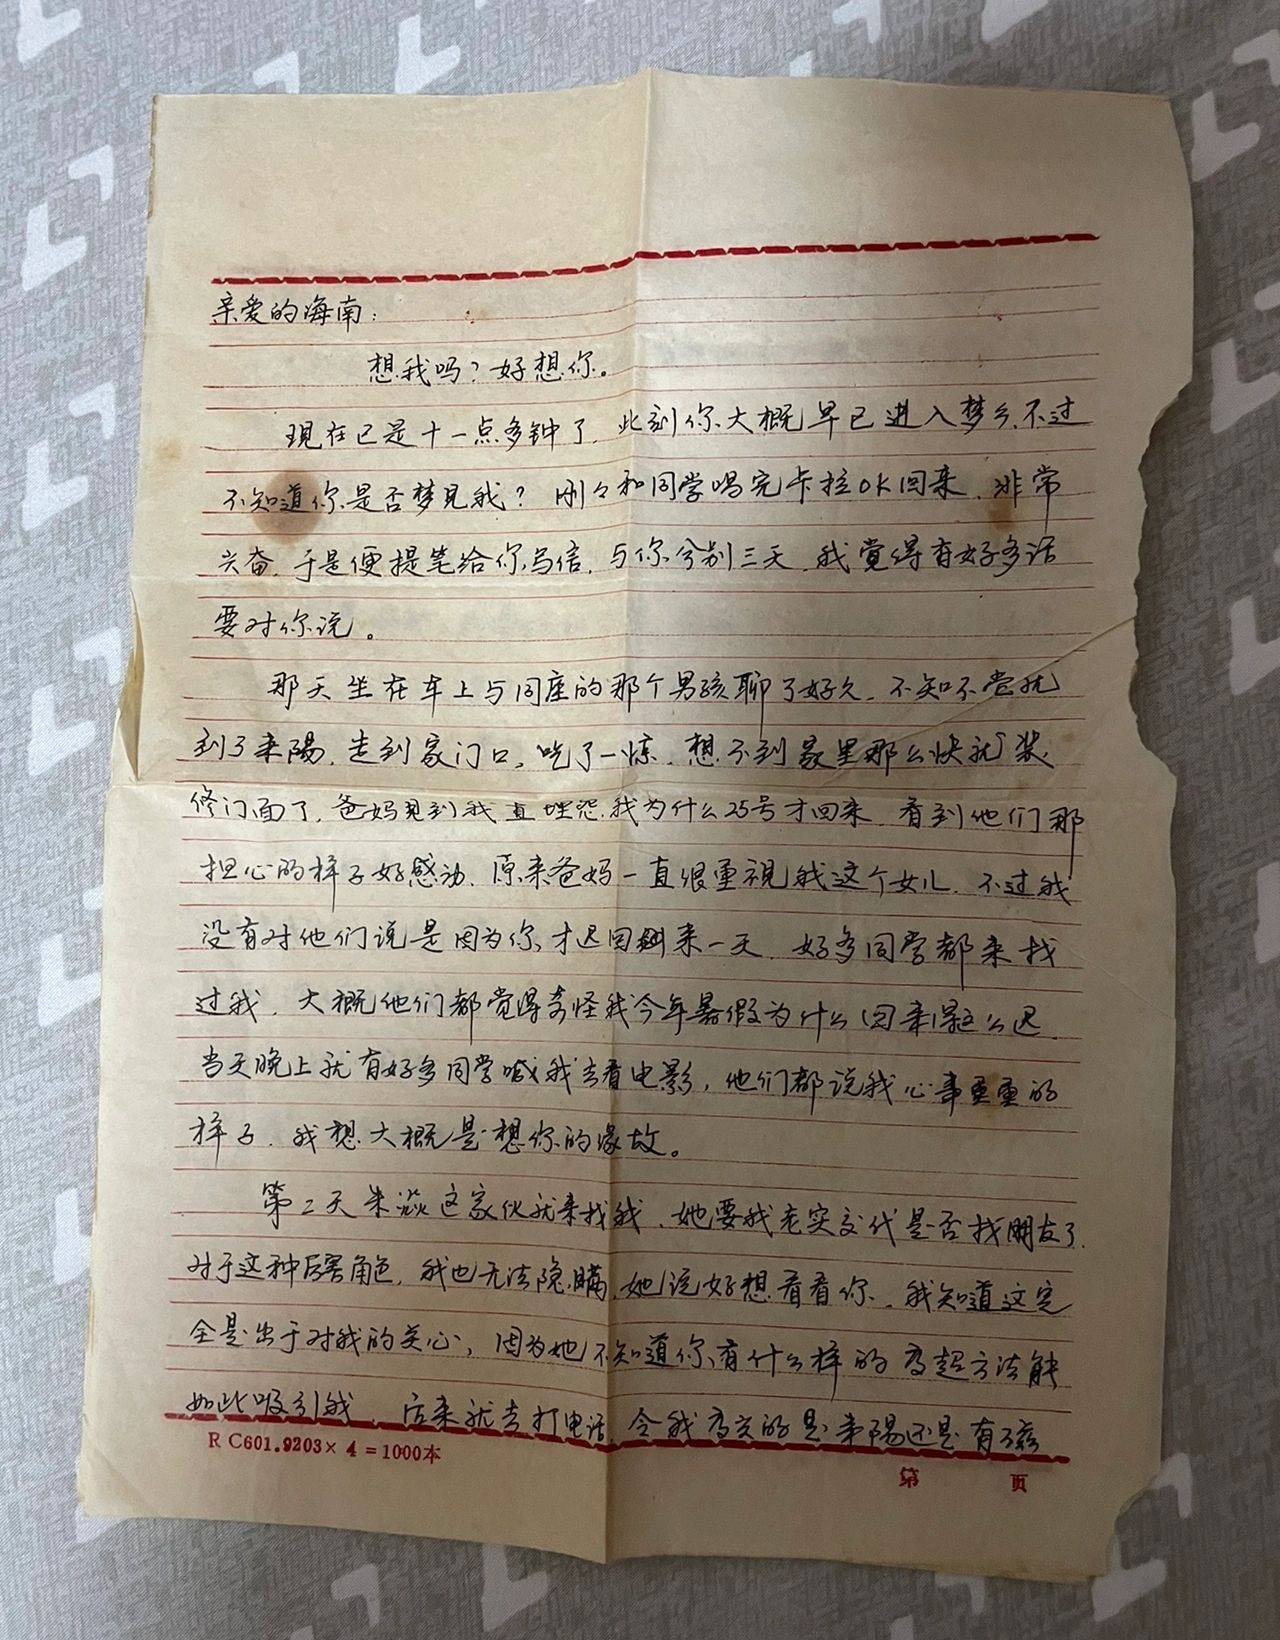 亲爱的海南：
想我吗？好想你。
现在已是十一点多钟了，此刻你大概早已进入梦乡，不过
不知道你是否梦见我？刚々和同学唱完卡拉OK回来，非常
兴奋，于是便提笔给你写信，与你分别三天，我觉得有好多话
要对你说。
那天坐在车上与同座的那个男孩聊了好久，不知不觉就
到了耒陽，走到家门口，吃了一惊，想不到家里那么快就装
修门面了，爸妈见到我直埋怨我为什么25号才回来，看到他们那
担心的样子好感动，原来爸妈一直很重视我这个女儿，不过我
没有对他们说是因为你，才迟回来一天，好多同学都来找
过我，大概他们都觉得奇怪我今年暑假为什么回来得这么迟
当天晚上就有好多同学喊我去看电影，他们都说我心事重重的
样子，我想大概是想你的缘故。
第二天朱焱这家伙就来找我，她要我老实交代是否找朋友了，
对于这种厉害角色，我也无法隐瞒，她说好想看看你，我知道这完
全是出于对我的关心，因为她不知道你有什么样的高超方法能
如此吸引我，后来就去打电话，令我高兴的是耒陽还是有磁
R C601.9203×4=1000本
第 页